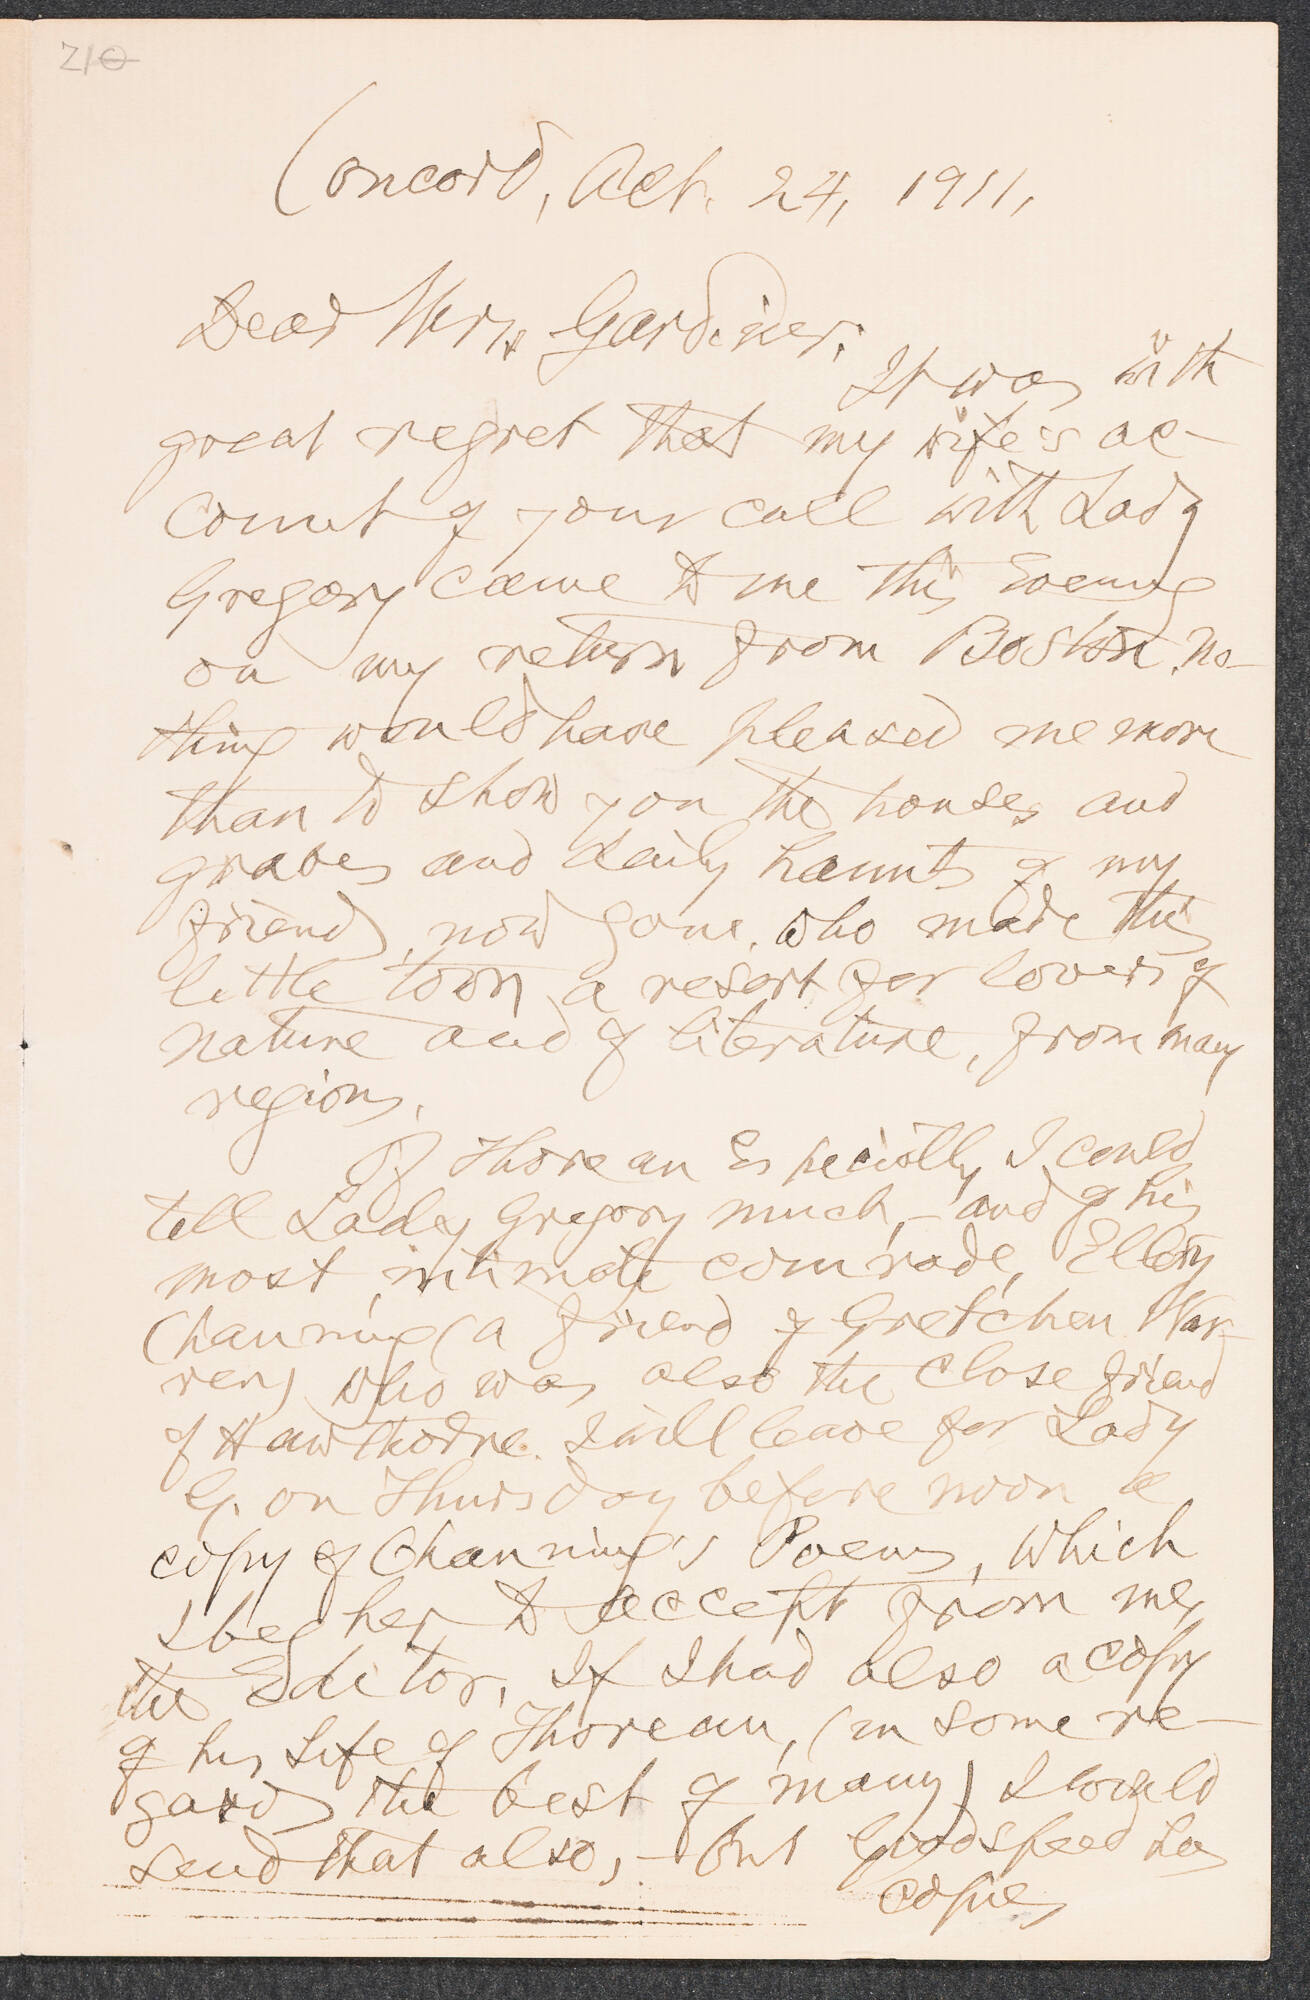 210
Concord, Oct. 24, 1911,
Dear Mrs. Gardiner;
It was with
great regret that my wife's ac-
count of your call with Lady
Gregory came to me this Evening
on my return from Boston. No-
thing would have pleased me more
than to show you the houses and
graves and daily haunts of my
friends, now gone, who made this
little town a resort for lovers of
nature and of literature, from many
regions.
Of Thoreau Especially, I could
tell Lady Gregory much, – and of his
most intimate comrade, Ellery
Channing (a friend of Gretchen War-
ren) who was also the close friend
of Hawthorne. I will leave for Lady
G. on Thursday before noon a
copy of Channing's Poems, which
I beg her to accept from me,
the Editor. If I had also a copy
of his Life of Thoreau, (in some re-
gards the best of many) I would
send that also, – but Goodspeed has
copies